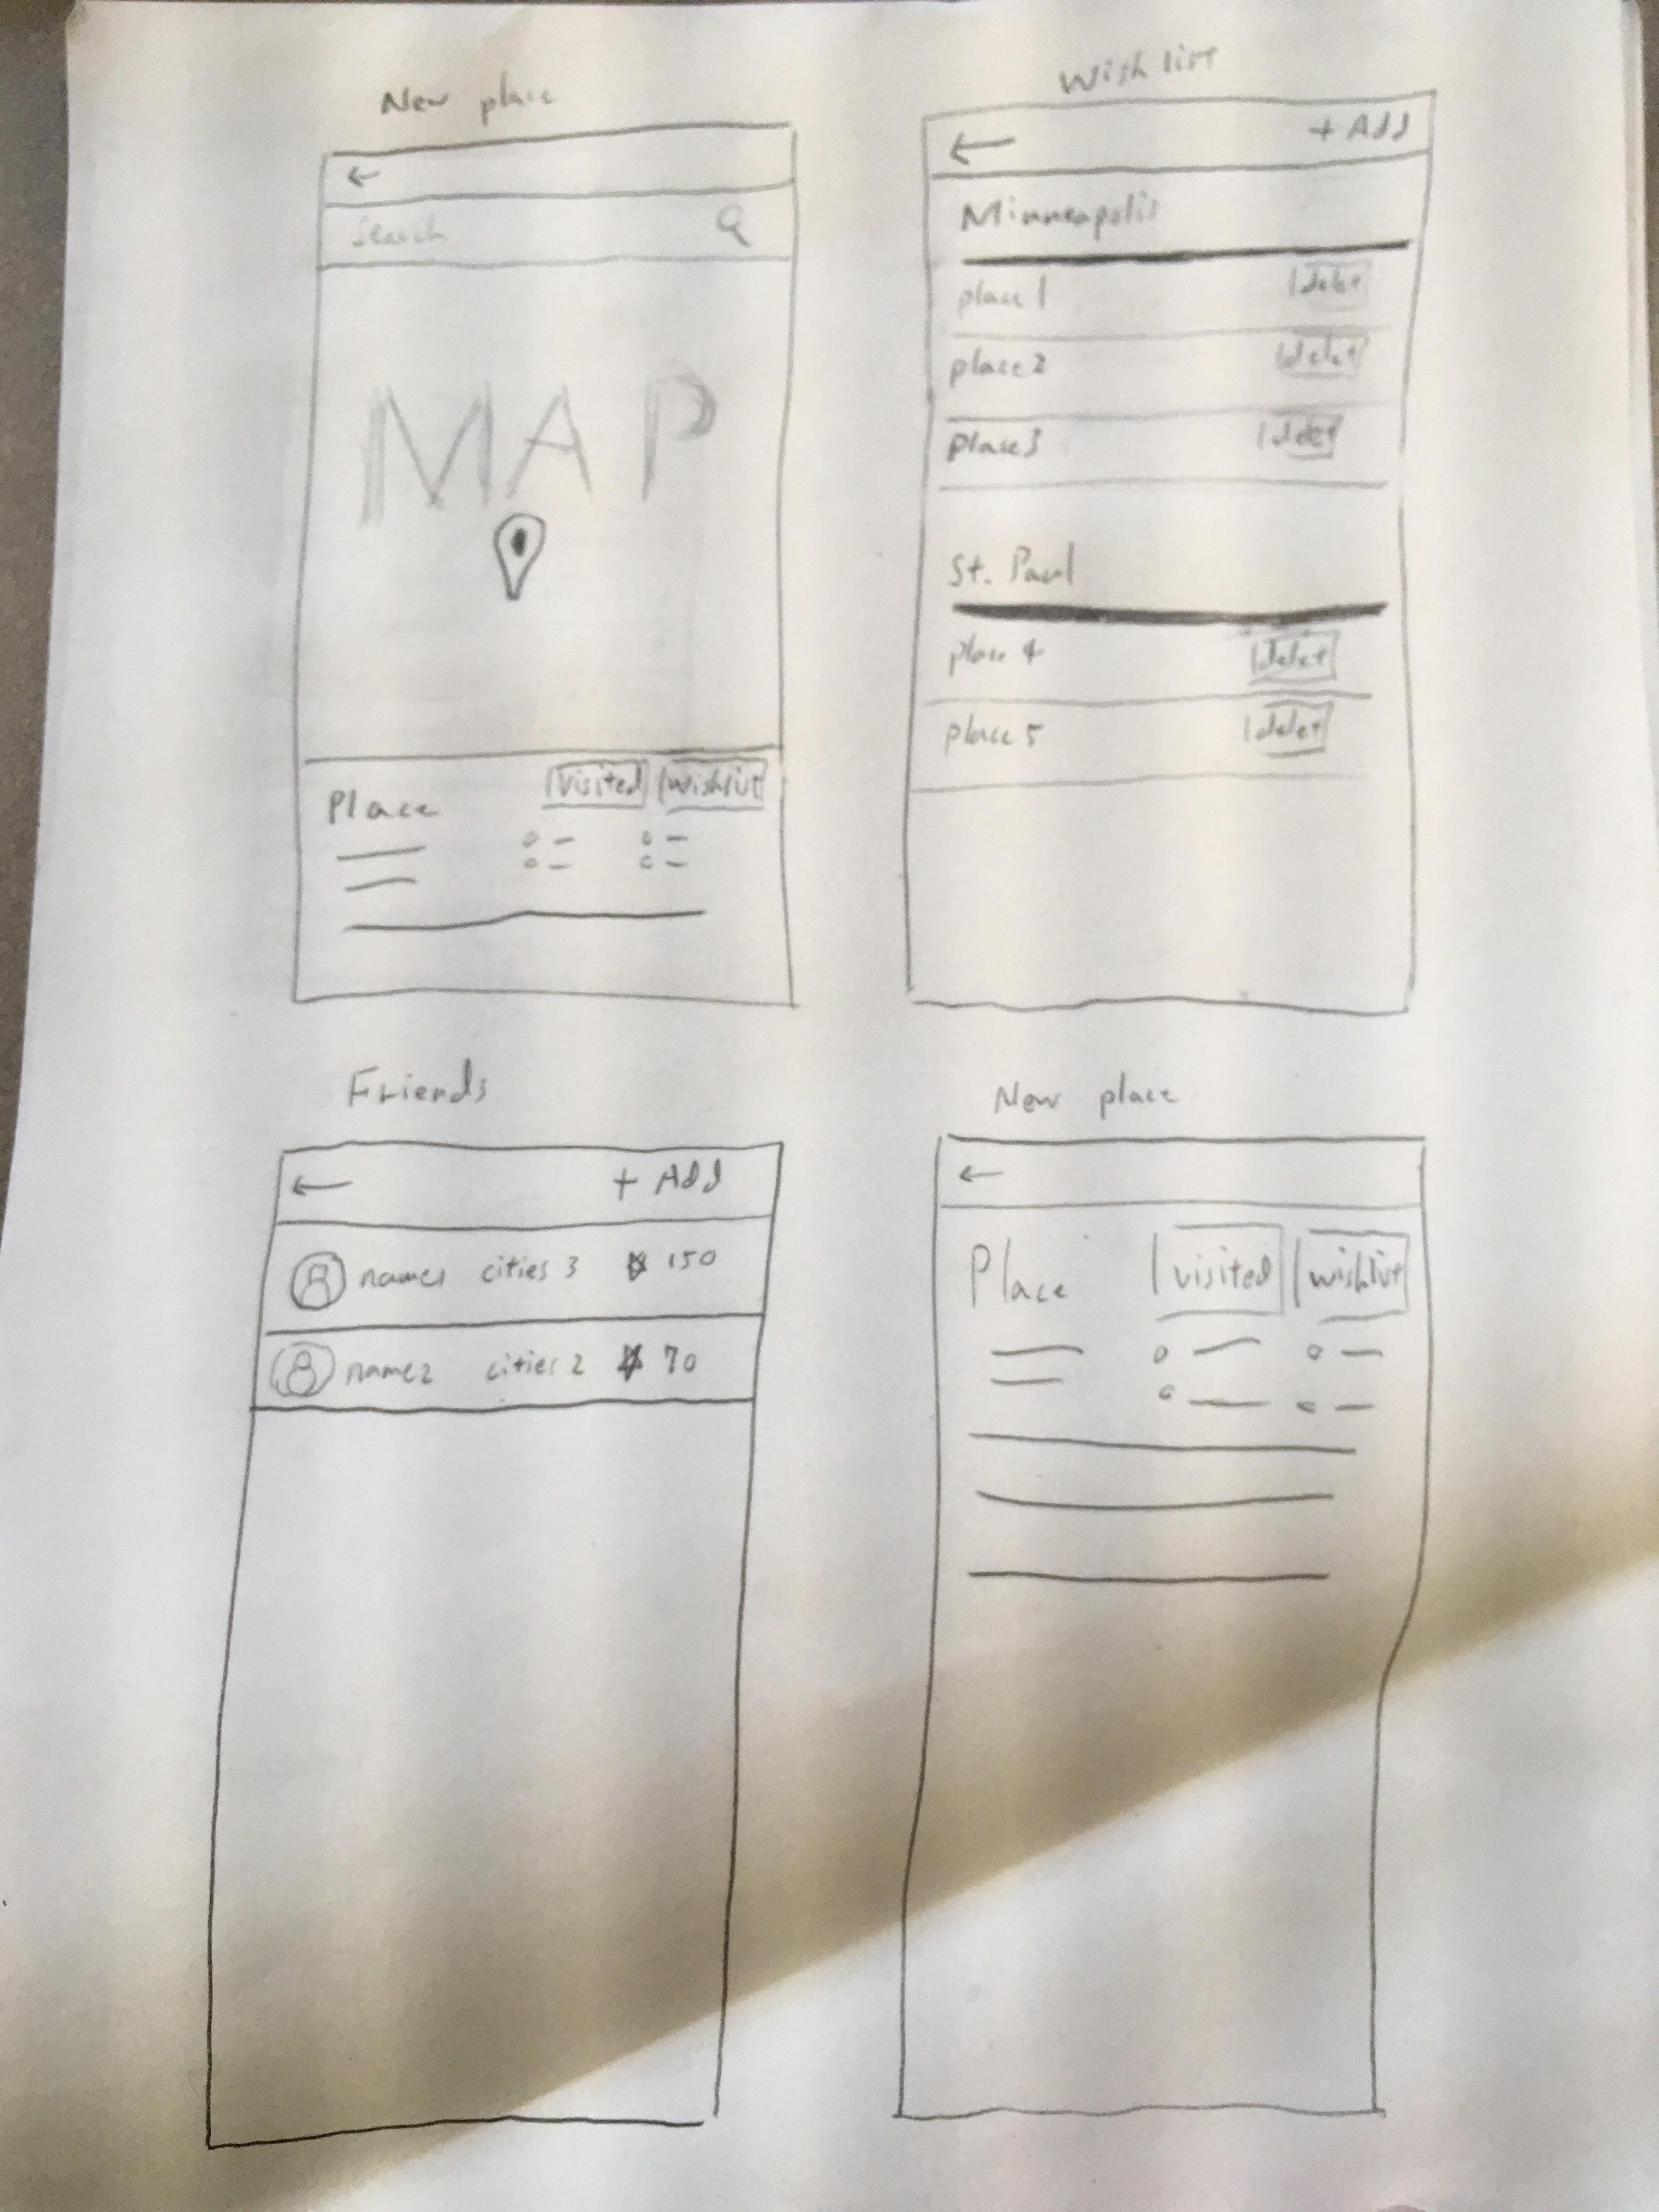 New place
←
Search
MAP
Place visited wishlist
Wish list
← + Add
Minneapolis
place 1 delet
place 2 delet
place 3 delet
St. Paul
place 4 delet
place 5 delet
Friends
← + Add
name1 cities 3 ☆ 150
name2 cities 2 ☆ 70
New place
←
Place visited wishlist